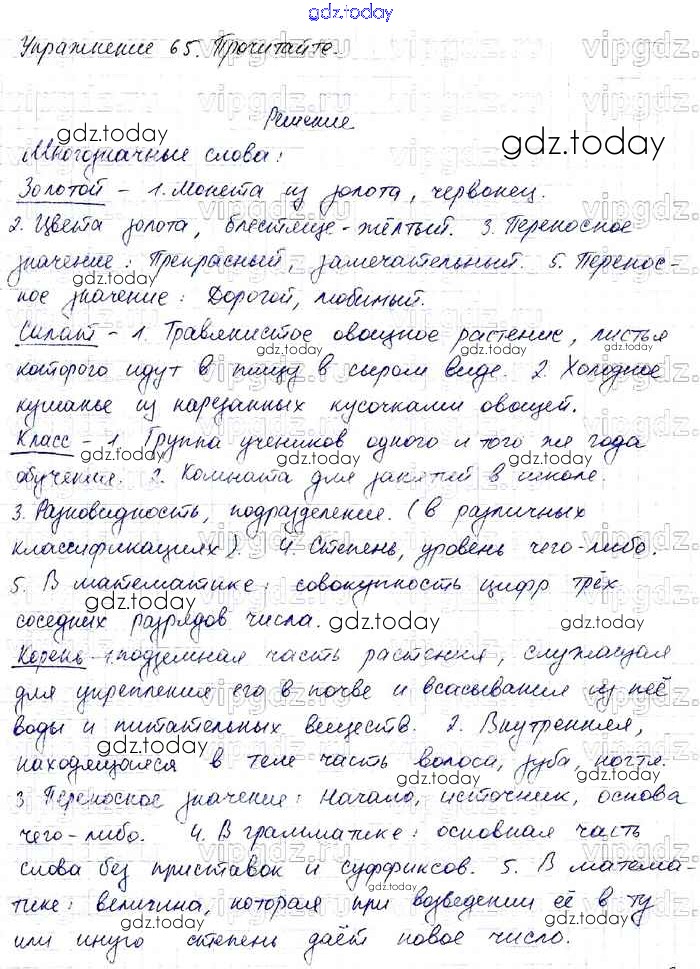 gdz.today
Упражнение 65. Прочитайте.
Решение
Многозначные слова:
Золотой - 1. Монета из золота, червонец.
2. Цвета золота, блестяще-жёлтый. 3. Переносное
значение: Прекрасный, замечательный. 5. Перенос-
ное значение: Дорогой, любимый.
Силат - 1. Травянистое овощное растение, листья
которого идут в пищу в сыром виде. 2. Холодное
кушанье из нарезанных кусочками овощей.
Класс - 1. Группа учеников одного и того же года
обучения. 2. Комната для занятий в школе.
3. Разновидность, подразделение. (в различных
классификациях). 4. Степень, уровень чего-либо.
5. В математике: совокупность цифр трёх
соседних разрядов числа.
Корень - 1. подземная часть растения, служащая
для укрепления его в почве и всасывания из неё
воды и питательных веществ. 2. Внутренняя,
находящаяся в теле часть волоса, зуба, ногтя.
3. Переносное значение: Начало, источник, основа
чего-либо. 4. В грамматике: основная часть
слова без приставок и суффиксов. 5. В матема-
тике: величина, которая при возведении её в ту
или иную степень даёт новое число.